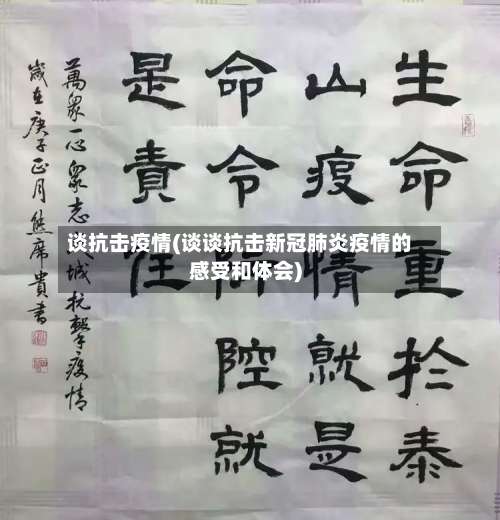 生命重扵泰
山疫情就是
命令防控就
是責任
萬眾一心眾志成城抗擊疫情
歲在庚子正月熊席貴書
谈抗击疫情(谈谈抗击新冠肺炎疫情的
感受和体会)